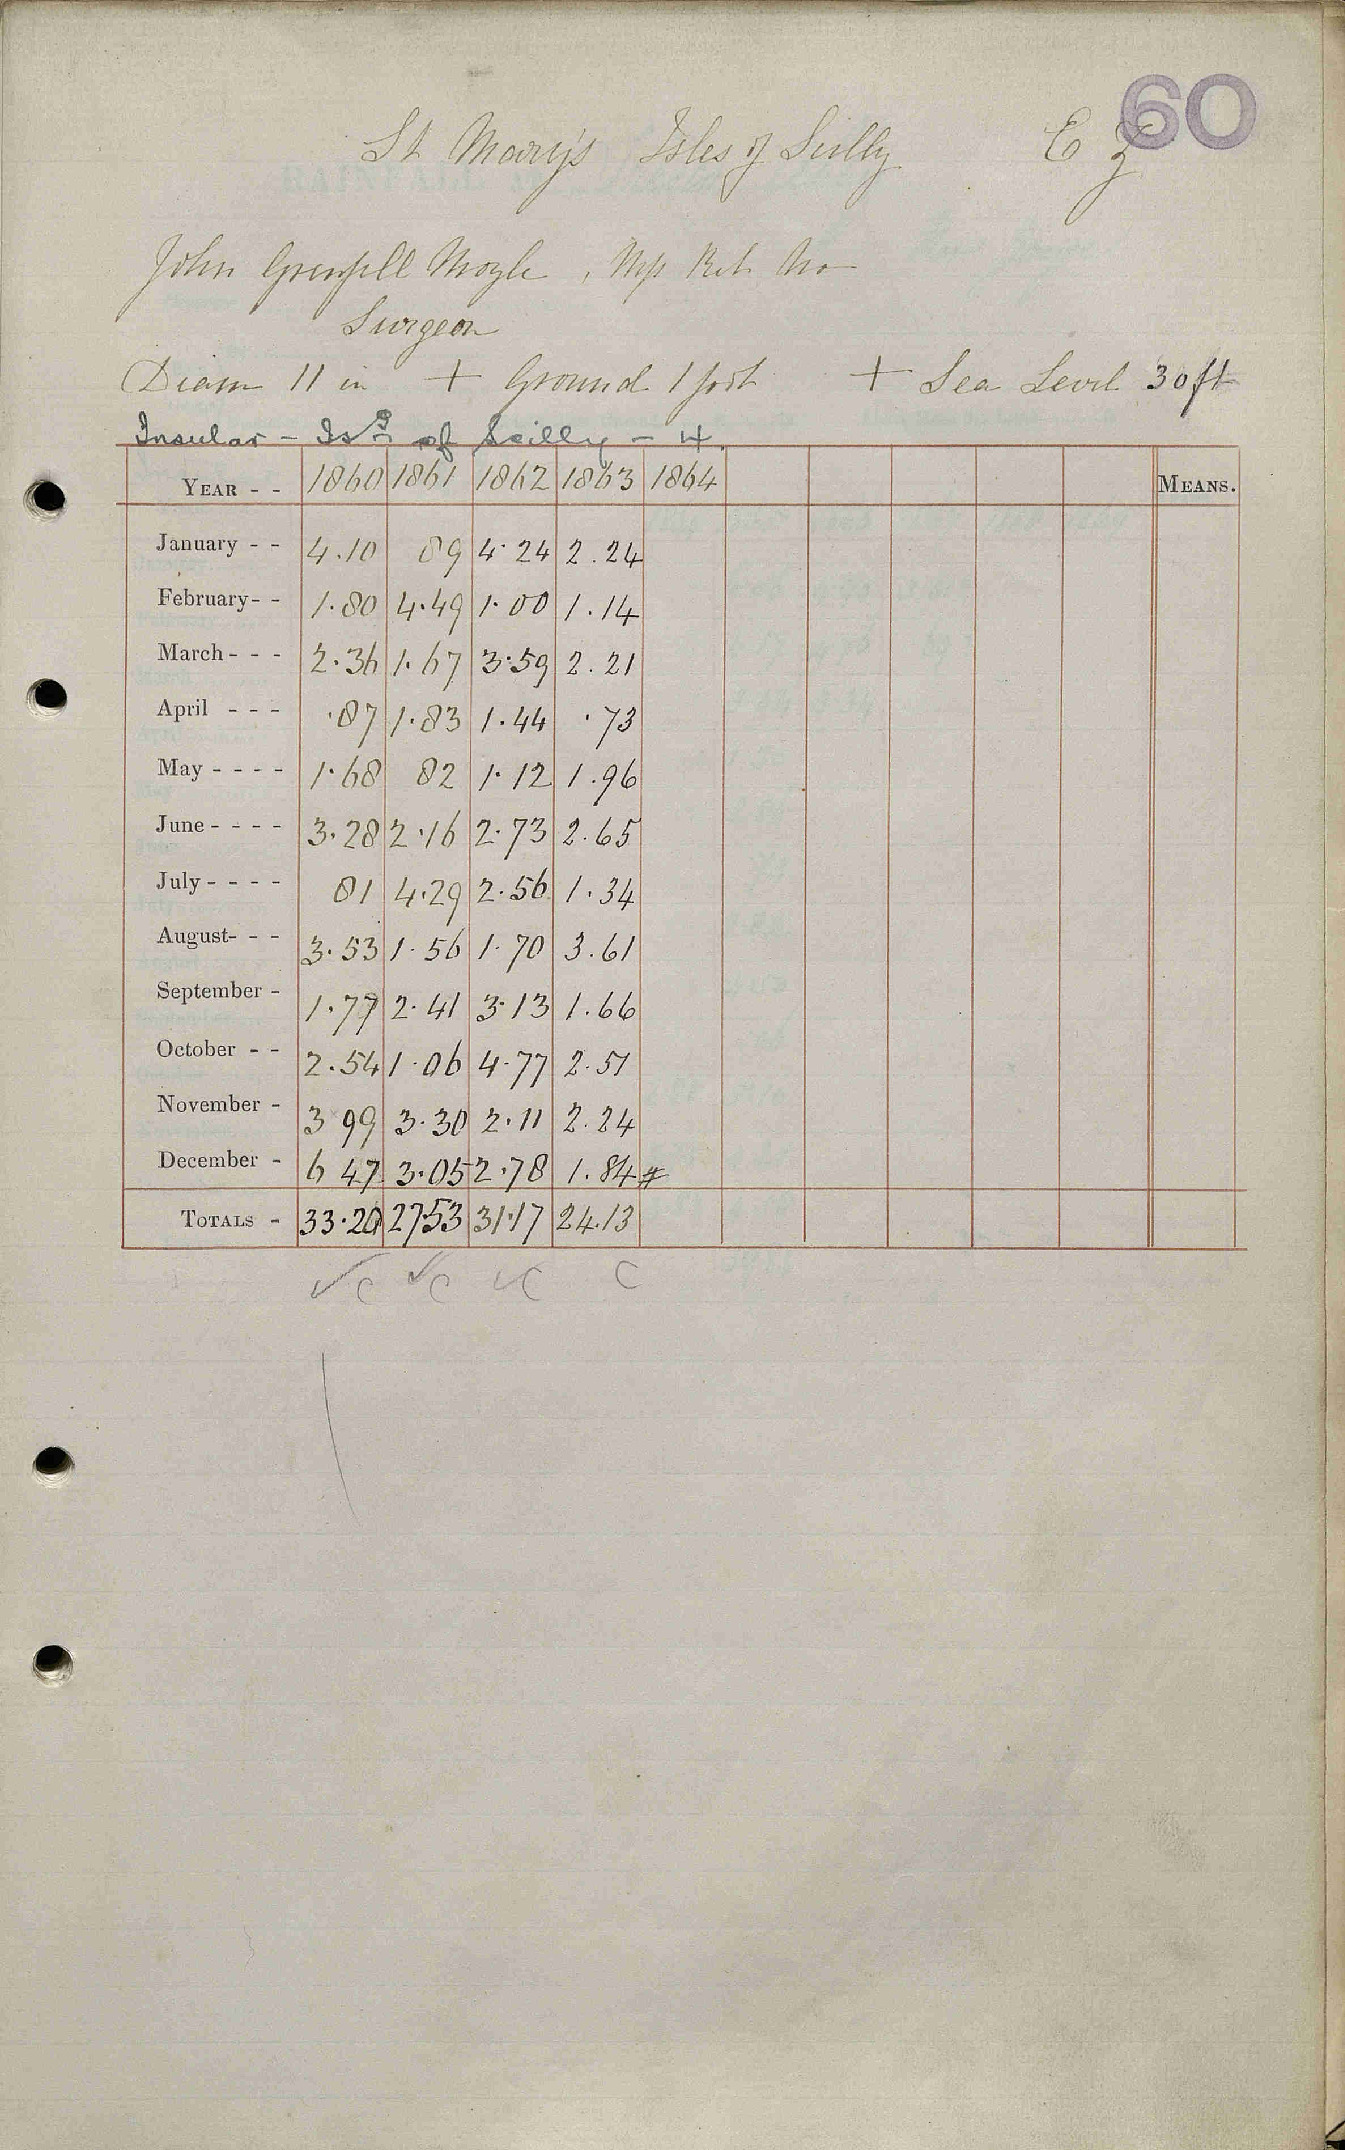 60
St Mary's Isles of Scilly E z
John Grenfell Moyle, Mp Ret No
Surgeon
Diam 11 in + Ground 1 foot + Sea Level 30 ft
Insular - Isds of Scilly - 4.
YEAR - - 1860 1861 1862 1863 1864 MEANS.
January - - 4.10 89 4.24 2.24
February - - 1.80 4.49 1.00 1.14
March - - - 2.36 1.67 3.59 2.21
April - - - .87 1.83 1.44 .73
May - - - - 1.68 82 1.12 1.96
June - - - - 3.28 2.16 2.73 2.65
July - - - - 81 4.29 2.56 1.34
August - - - 3.53 1.56 1.70 3.61
September - 1.77 2.41 3.13 1.66
October - - 2.54 1.06 4.77 2.51
November - 3 99 3.30 2.11 2.24
December - 6 47 3.05 2.78 1.84 #
TOTALS - 33.20 27.53 31.17 24.13
✓c ✓c ✓c c